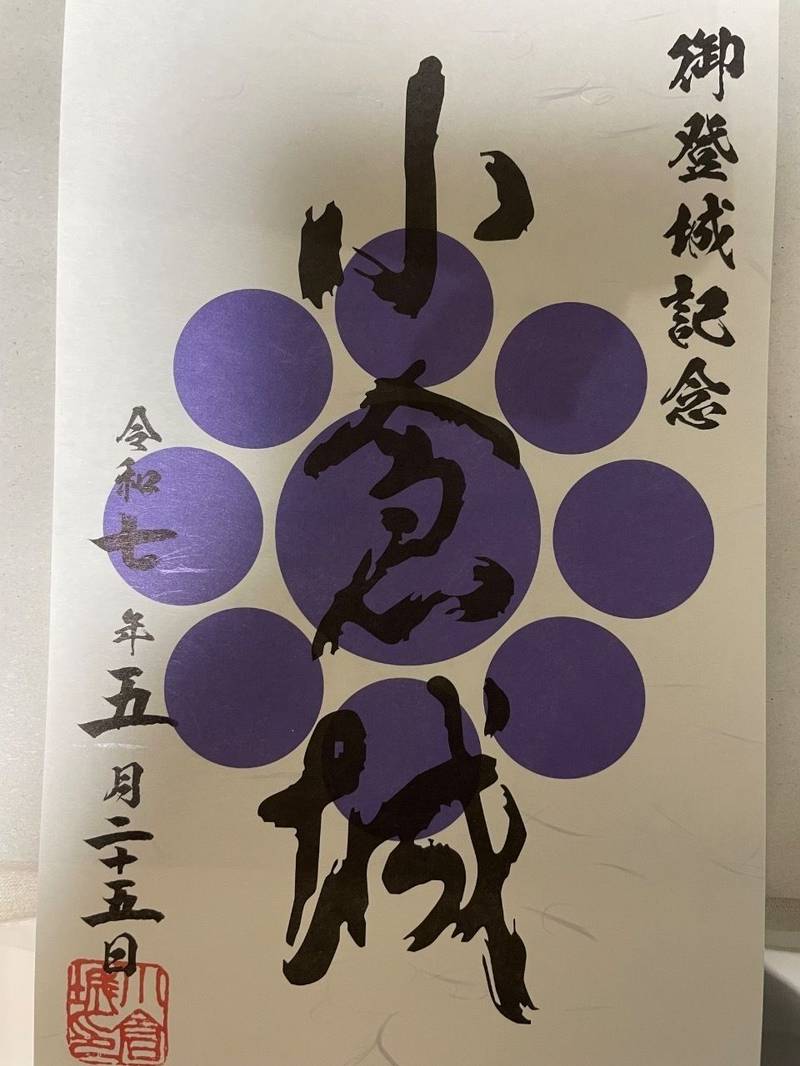 御登城記念
小倉城
令和七年五月二十五日
小倉
城印